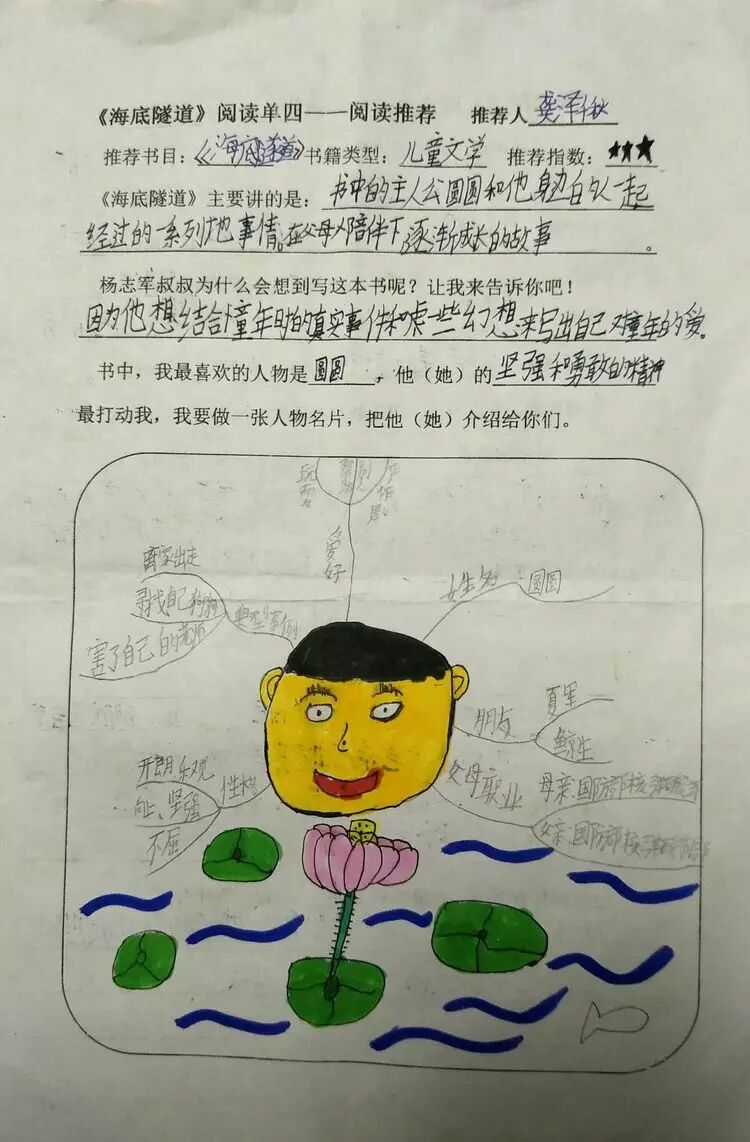 《海底隧道》阅读单四——阅读推荐 推荐人 龚泽秋
推荐书目：《海底隧道》书籍类型：儿童文学 推荐指数：★★★
《海底隧道》主要讲的是：书中的主人公圆圆和他身边的人一起
经过的一系列地事情。在父母的陪伴下，逐渐成长的故事。
杨志军叔叔为什么会想到写这本书呢？让我来告诉你吧！
因为他想结合童年时的真实事件和一些幻想来写出自己对童年的爱。
书中，我最喜欢的人物是 圆圆 ，他（她）的坚强和勇敢的精神
最打动我，我要做一张人物名片，把他（她）介绍给你们。
爱好
离家出走
寻找自己狗狗
害了自己的老师
典型事例
姓名 圆圆
朋友
夏里
鲸生
父母职业
母亲：国防部核
父亲：国防部核
性格
开朗乐观
向上、坚强
不屈